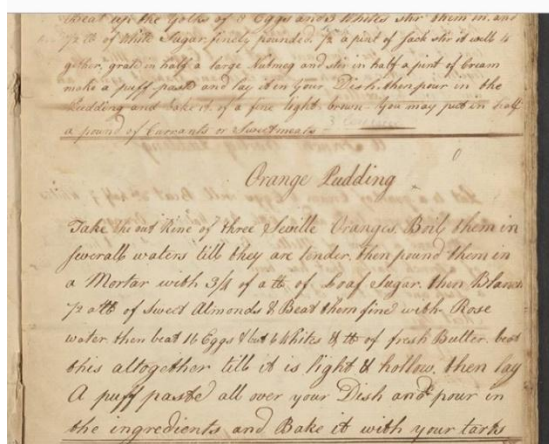 beat up the Yolks of 8 Eggs and 3 Whites stir them in, and
1/2 lb of White Sugar finely pounded, 1/2 a pint of Sack stir it well to
gether, grate in half a large Nutmeg and stir in half a pint of Cream
make a puff paste and lay it in your Dish, then pour in the
Pudding and bake it of a fine light brown - You may put in half
a pound of Currants or Sweetmeats
Orange Pudding
Take the out Rine of three Seville Oranges, Boil them in
severall waters till they are tender, then pound them in
a Mortar with 3/4 of a lb of Loaf Sugar, then Blanch
1/2 a lb of Sweet Almonds & Beat them fine with Rose
water then beat 16 Eggs & but 6 Whites & lb of fresh Butter, beat
this altogether till it is light & hollow, then lay
A puff paste all over your Dish and pour in
the ingredients and Bake it with your tarts